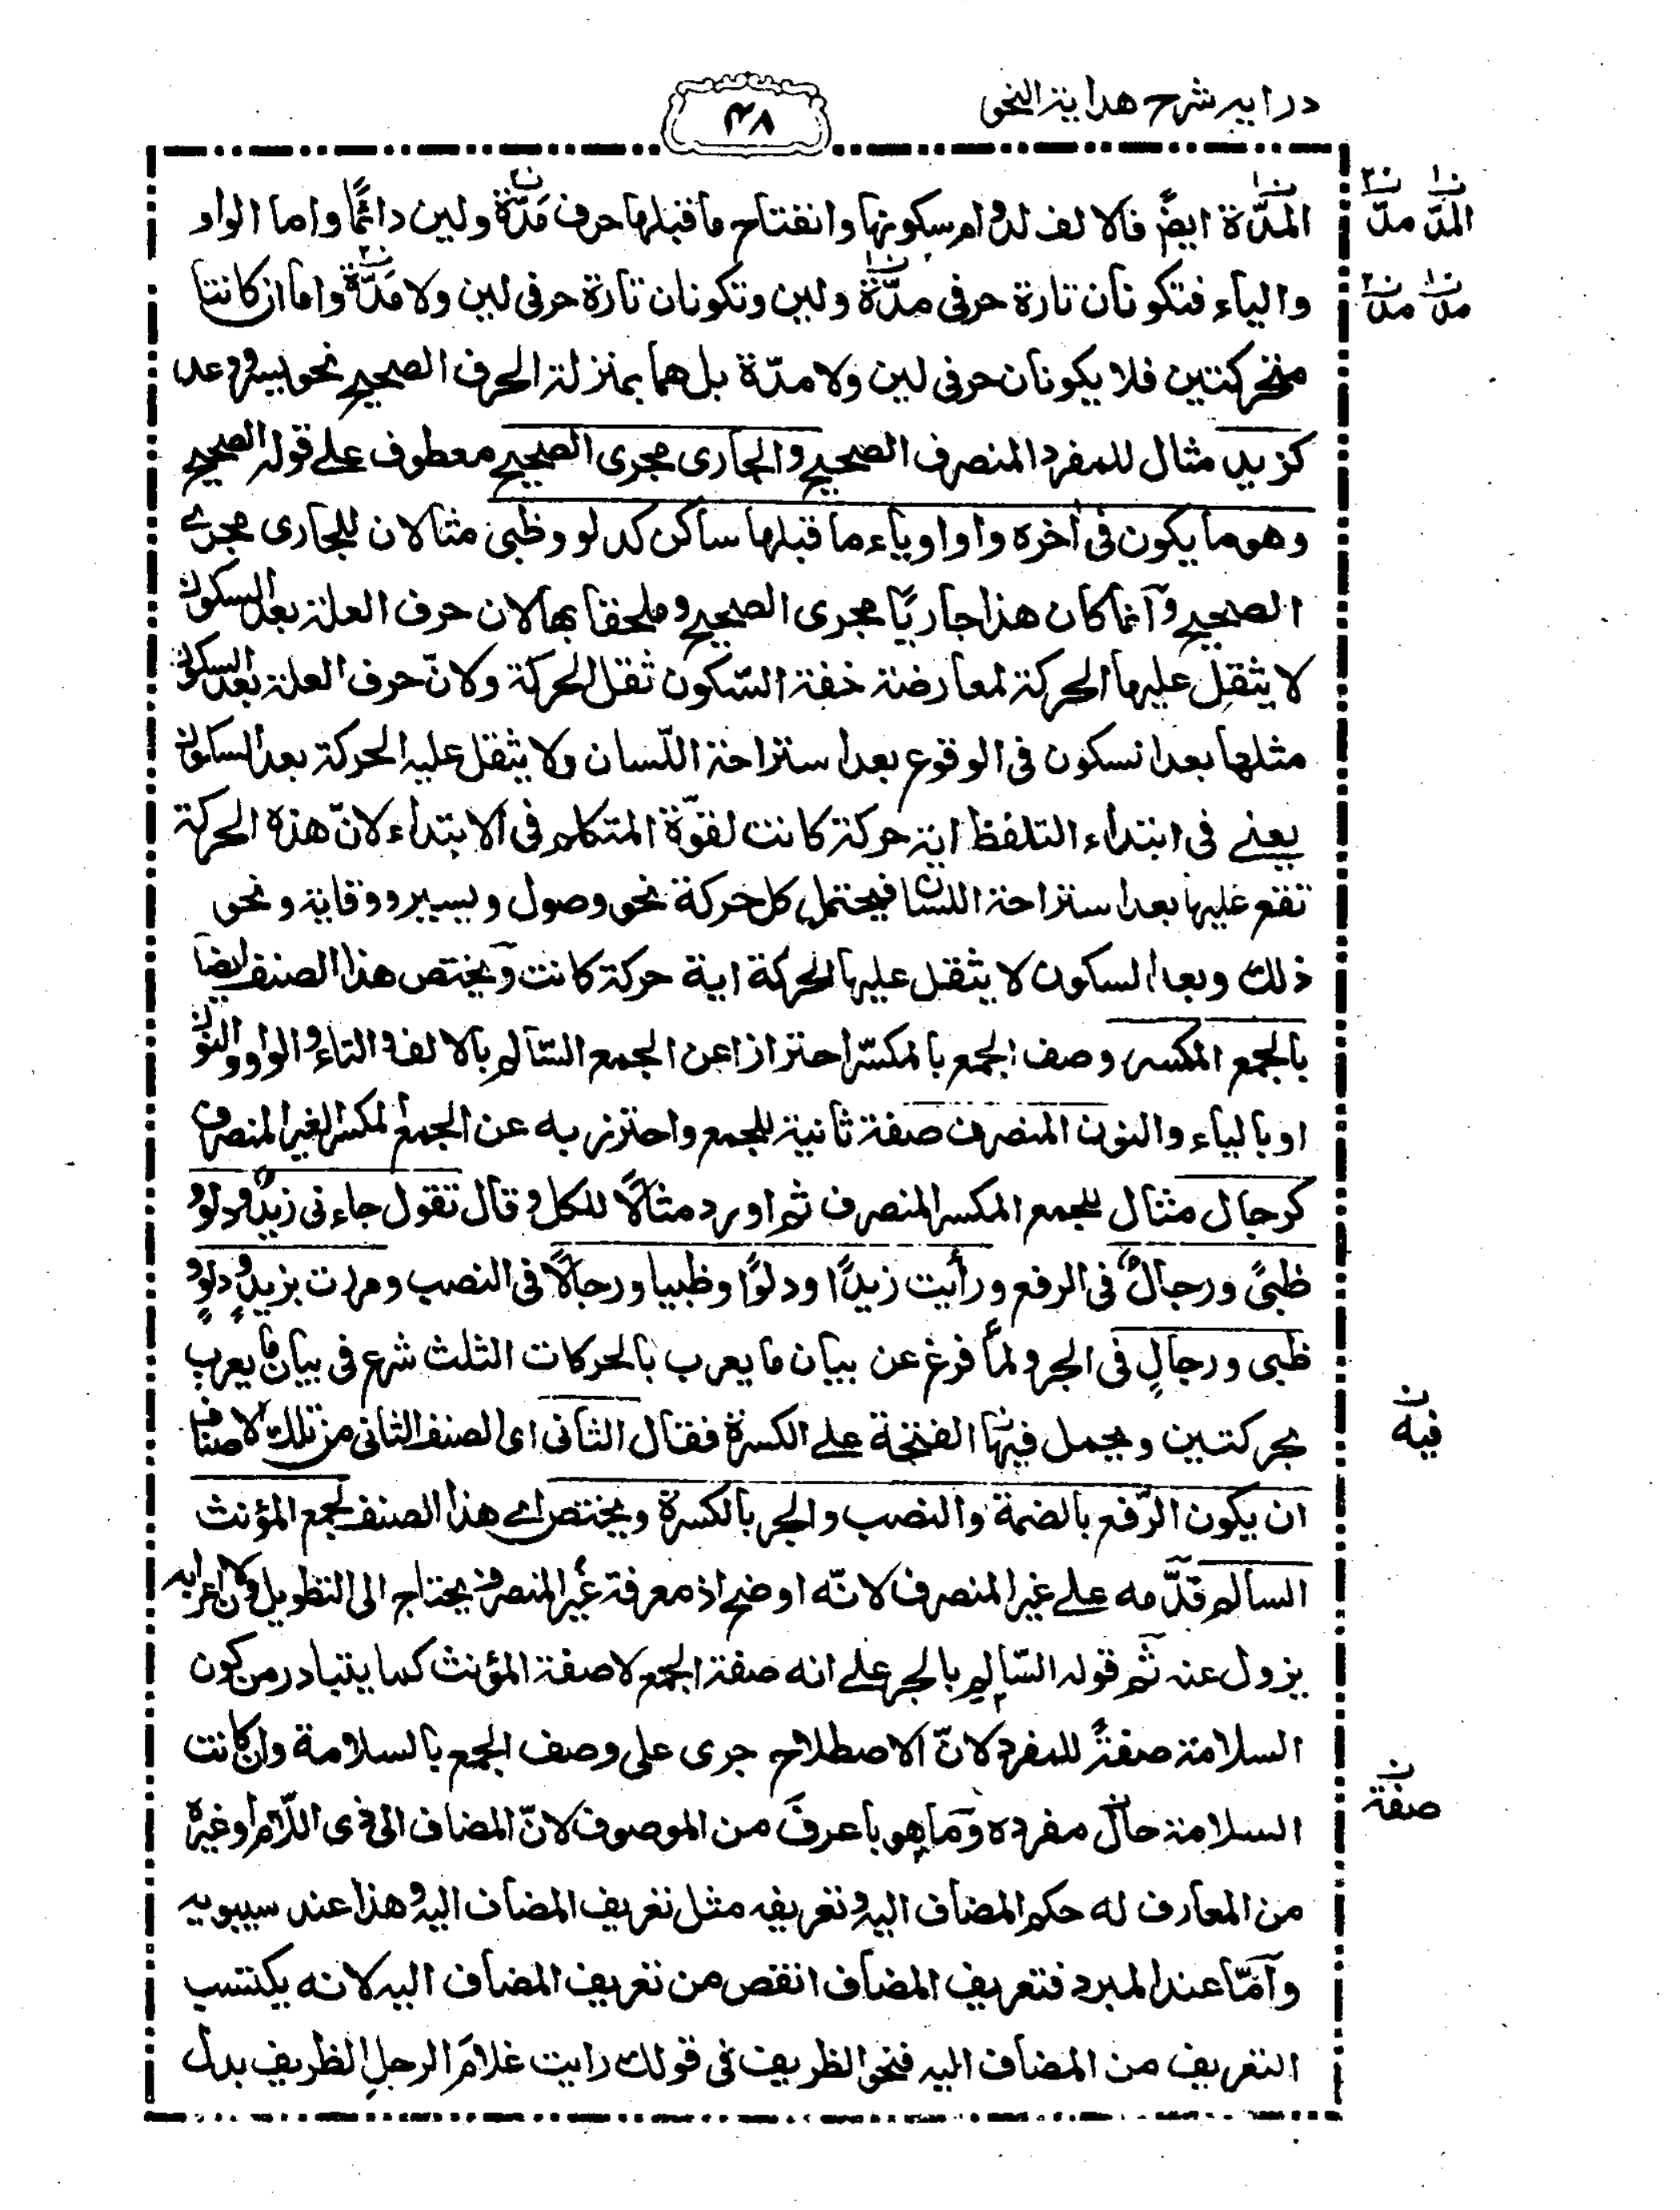 درايه شرح هداية النحو
٤٨
المدّة ايضً فالالف لدوام سكونها وانفتاح ما قبلها حرف مَدّة ولين دائمًا واما الواو
والياء فتكونان تارة حرفى مدّة ولين وتكونان تارة حرفى لين ولا مَدّة واما ان كانتا
متحركتين فلا يكونان حرفى لين ولا مدّة بل هما بمنزلة الحرف الصحيح نحو يسر وعد
كزيد مثال للمفرد المنصرف الصحيح والجارى مجرى الصحيح معطوف على قوله الصحيح
وهو ما يكون فى أخره واو او ياء ما قبلها ساكن كدلو وظبى مثالان للجارى مجرے
الصحيح وآنما كان هذا جاريًا مجرى الصحيح وملحقا بها لان حرف العلة بعد السكون
لا يثقل عليها الحركة لمعارضة خفة السّكون ثقل الحركة ولانّ حرف العلة بعد السكون
مثلها بعد السكون فى الوقوع بعد استراحة اللّسان ولا يثقل عليه الحركة بعد السكون
يعنے فى ابتداء التلفظ اية حركة كانت لقوّة المتكلم فى الابتداء لانّ هذه الحركة
تقع عليها بعد استراحة اللسان فيحتمل كل حركة نحو وصول ويسير ووقاية ونحو
ذلك وبعد السكون لا يثقل عليها الحركة اية حركة كانت وَيختص هذا الصنف ايضا
بالجمع المكسر وصف الجمع بالمكسّر احترازا عن الجمع السّالم بالالف والتاء والواو والنون
او بالياء والنون المنصرف صفة ثانية للجمع واحترز به عن الجمع المكسر الغير المنصرف
كرجال مثال للجمع المكسر المنصرف ثم اورد مثالًا للكل وقال تقول جاءنى زيدٌ ودلوٌ و
ظبىٌ ورجالٌ فى الرفع ورأيت زيدًا ودلوًا وظبيا ورجالًا فى النصب ومررت بزيدٍ ودلوٍ و
ظبى ورجالٍ فى الجر ولمّا فرغ عن بيان ما يعرب بالحركات الثلث شرع فى بيان ما يعرب
بحركتين ويحمل فيها الفتحة على الكسرة فقال الثانى اى الصنف الثانى من تلك الاصناف
ان يكون الرّفع بالضمة والنصب والجر بالكسرة ويختص اے هذا الصنف بجمع المؤنث
السالم قدّمه على غير المنصرف لانّه اوضح اذ معرفة غير المنصرف يحتاج الى التطويل ولان اعرابه
يزول عنه ثم قوله السّالم بالجر على انه صفة الجمع لا صفة المؤنث كما يتبادر من كون
السلامة صفةً للمفرد لانّ الاصطلاح جرى على وصف الجمع بالسلامة وان كانت
السلامة حال مفرده وَما هو باعرفَ من الموصوف لانّ المضاف الى ذى اللّام او غيره
من المعارف له حكم المضاف اليه وتعريفه مثل تعريف المضاف اليه وهذا عند سيبويه
وآمّا عند المبرد فتعريف المضاف انقص من تعريف المضاف اليه لانه يكتسب
التعريف من المضاف اليه فنحو الظريف فى قولك رايت غلامَ الرجلِ الظريف بدل
ن١ المدّ ن٢ مدّ
ن١ مد ن٢ مد
ن فيه
ن صفة